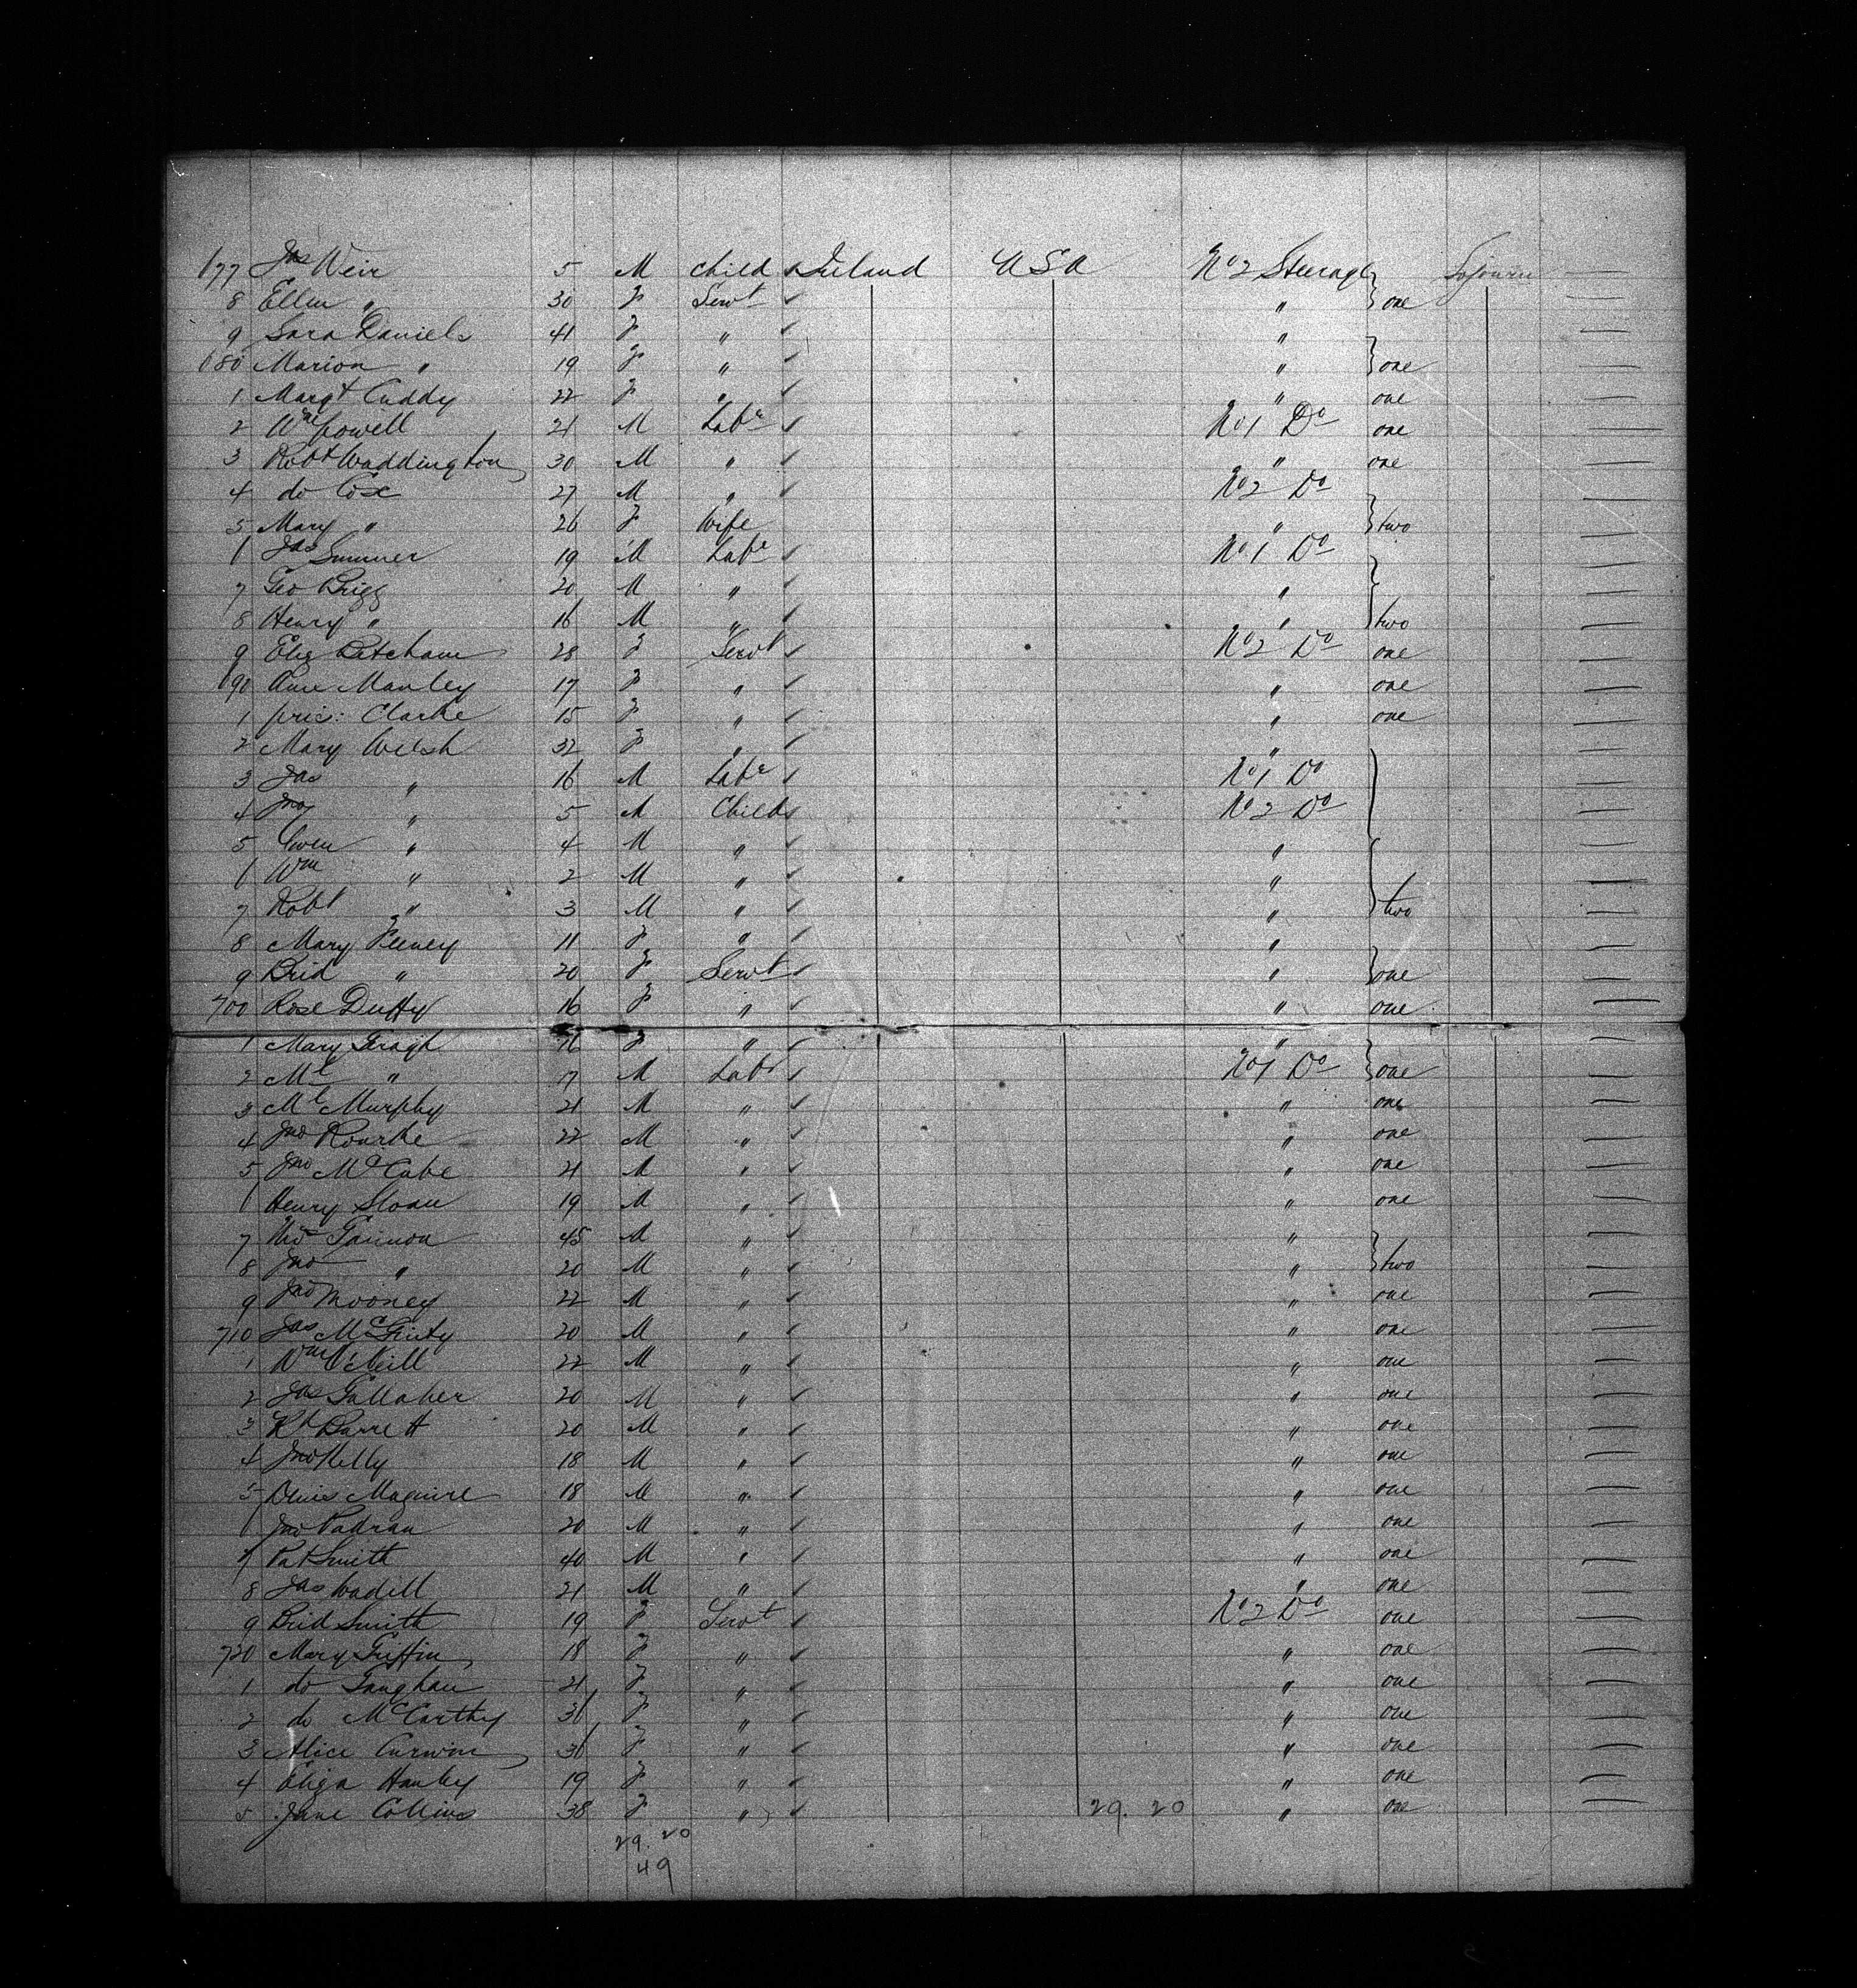 677 Jas Weir 5 M Child Ireland USA No 2 Steerage Sojourn
8 Ellen " 30 F Servt " one
9 Sara Daniels 41 F " "
680 Marion " 19 F " " one
1 Margt Cuddy 22 F " " one
2 Wm Powell 21 M Labr No 1 Do one
3 Robt Waddington 30 M " " one
4 do Cox 27 M " No 2 Do
5 Mary " 26 F Wife " two
6 Jas Sumner 19 M Labr No 1 Do
7 Geo Brigg 20 M " "
8 Henry " 16 M " " two
9 Eliz 28 F Servt No 2 Do one
690 Ann Manley 17 F " " one
1 Pris: Clarke 15 F " " one
2 Mary Welsh 32 F " "
3 Jas " 16 M Labr No 1 Do
4 Jno " 5 M Child No 2 Do
5 Owen " 4 M " "
6 Wm " 2 M " "
7 Robt " 3 M " " two
8 Mary Feeney 11 F " "
9 Brid " 20 F Servt " one
700 Rose Duffy 16 F " " one
1 Mary Geragh F " "
2 Ml " 17 M Labr No 1 Do one
3 Ml Murphy 21 M " " one
4 Jno Rourke 22 M " " one
5 Jno McCabe 21 M " " one
6 Henry Sloan 19 M " " one
7 45 M " "
8 Jno " 20 M " " two
9 Jno Mooney 22 M " " one
710 Jas McGinty 20 M " " one
1 Wm O'Neill 22 M " " one
2 Jas Gallaher 20 M " " one
3 Rd Barrett 20 M " " one
4 Jno Kelly 18 M " " one
5 Denis Maguire 18 M " " one
6 Jno Padran 20 M " " one
7 Pat Smith 40 M " " one
8 Jas Wadell 21 M " " one
9 Brid Smith 19 F Servt No 2 Do one
720 Mary Griffin 18 F " " one
1 do Gaughan 21 F " " one
2 do McCarthy 36 F " " one
3 Alice Curwin 36 F " " one
4 Eliza Hanley 19 F " " one
5 Jane Collins 38 F " 29. 20 " one
29. 20
49